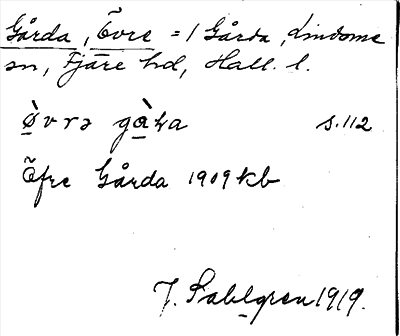 Gårda, Övre = 1 Gårda, Lindome
sn, Fjäre hd, Hall. l.
ø̀vrə gàɽa s. 112
Öfre Gårda 1909 kb
J. Sahlgren 1919.